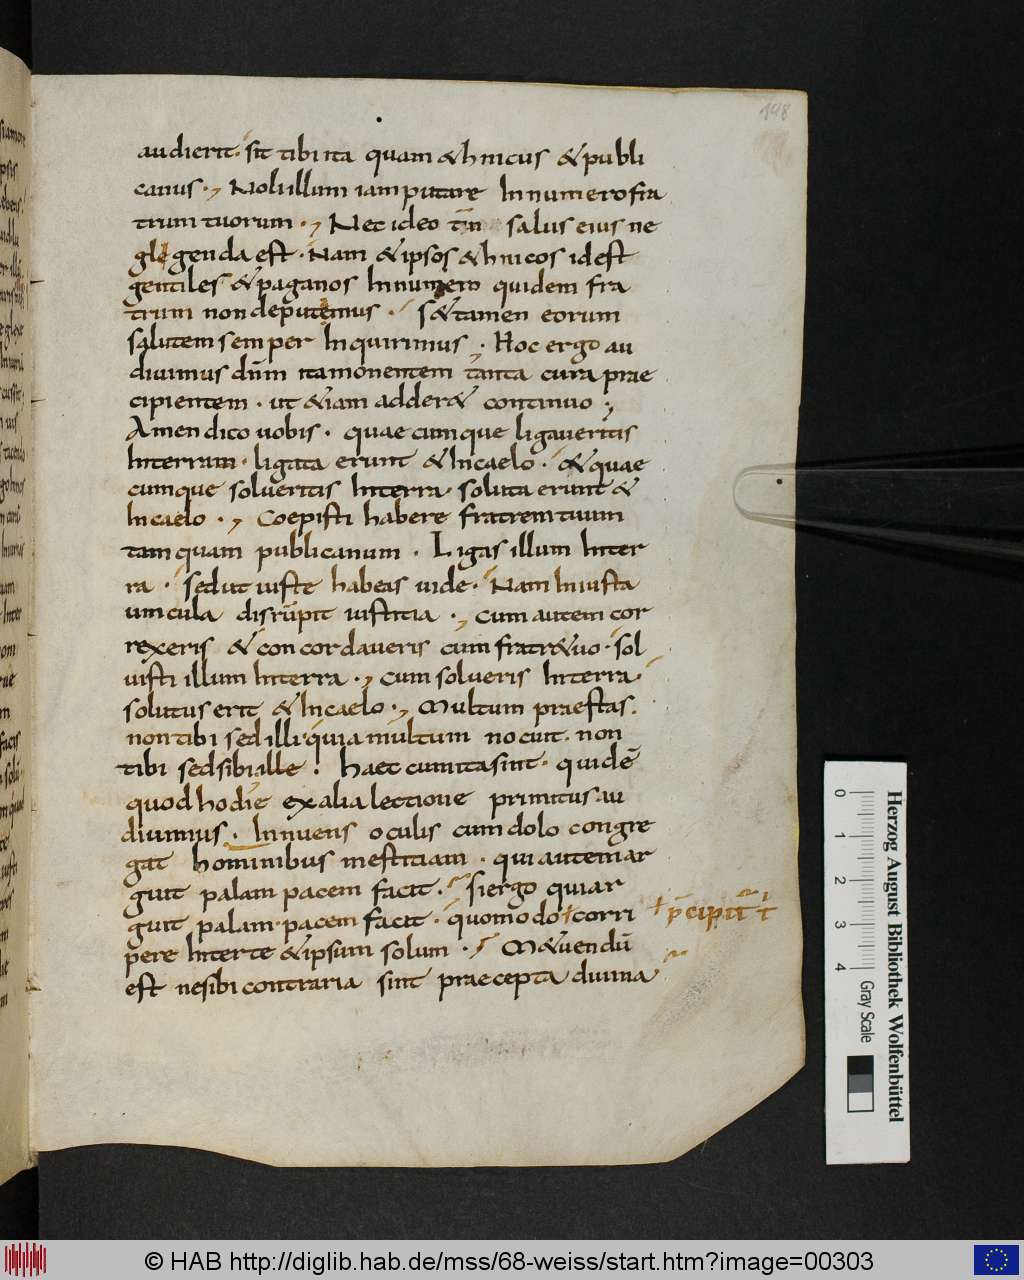 148
audierit. sit tibi ita quam &hnicus &publi
canus. Noli illum iam putare In numero fra
trum tuorum. Nec ideo tm̄ salus eius ne
glegenda est. Nam &ipsos &hnicos id est
gentiles &paganos In numero quidem fra
trum non deputemus. S&tamen eorum
salutem semper Inquirimus. Hoc ergo au
diuimus dūm ita monentem tanta cura prae
cipientem. ut &iam adder& continuo
Amen dico uobis. quaecumque ligaueritis
Interram. ligata erunt &Incaelo. &quae
cumque solueritis Interra soluta erunt &
Incaelo. Coepisti habere fratrem tuum
tamquam publicanum. Ligas illum Inter
ra. sed ut iuste habeas uide. Nam Iniusta
uincula disrūpit iustitia. cum autem cor
rexeris &concordaueris cum fratr&uo. sol
uisti illum Interra. cum solueris Interra.
solutus erit &Incaelo. Multum praestas.
non tibi sed illi quia multum nocuit. non
tibi sed sibi alle. haec cum ita sint. quidē
quod hodie ex alia lectione primitus au
diuimus. Innuens oculis cum dolo congre
gat hominibus mestitiam. qui autem ar
guit palam pacem facit. si ergo quia ar
guit palam. pacem facit. quomodo corri
pere Inter te &ipsum solum. M&uendū
est ne sibi contraria sint praecepta diuina
Herzog August Bibliothek Wolfenbüttel
0 1 2 3 4
Gray Scale
© HAB http://diglib.hab.de/mss/68-weiss/start.htm?image=00303